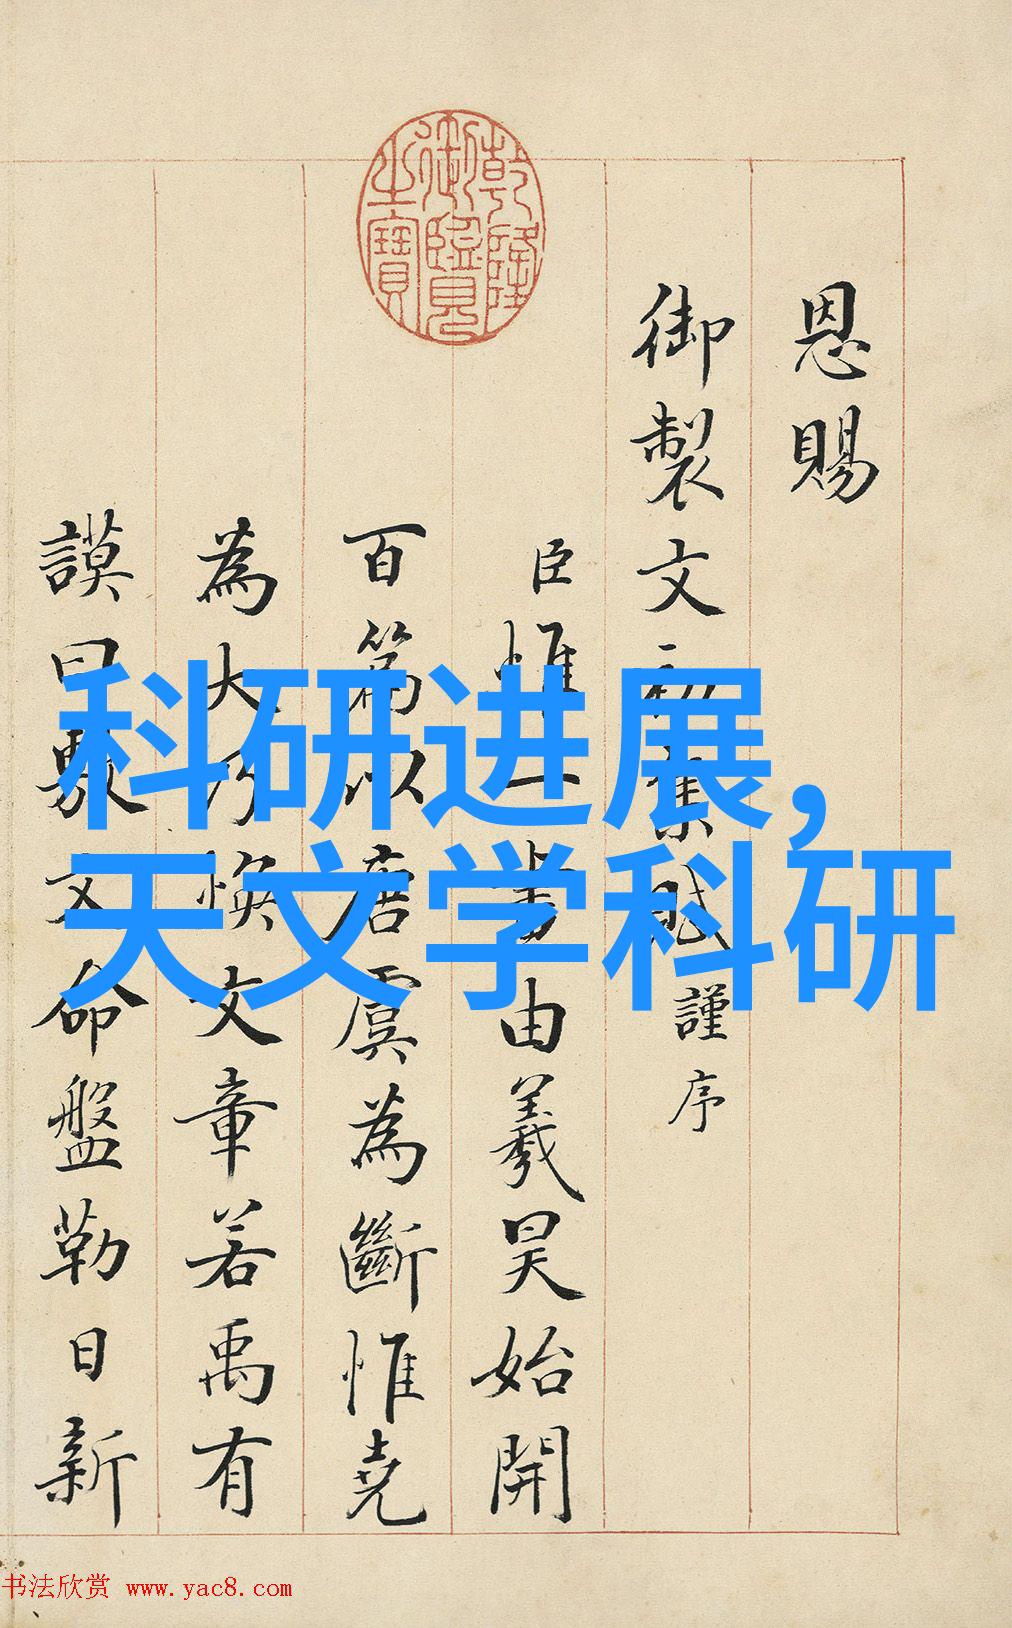 科研进展,
天文学科研
乾隆御覽之寶
恩賜
御製文初集賦謹序
臣惟一畫由羲昊始開
百篇以唐虞為斷惟堯
為大乃煥文章若禹有
謨曰敷文命盤勒日新
书法欣赏 www.yac8.com